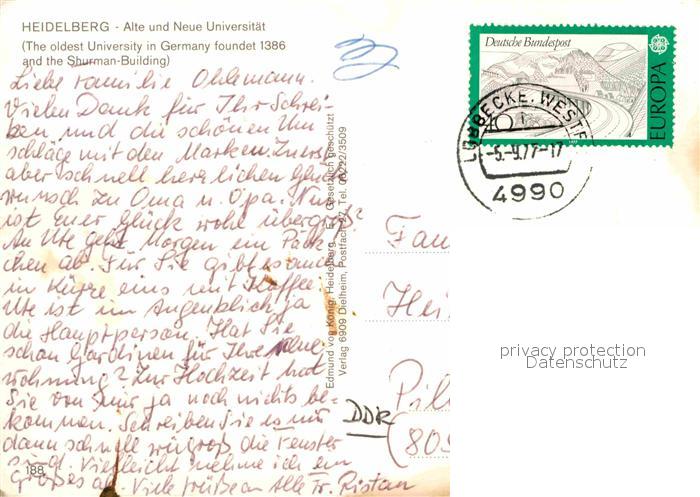 HEIDELBERG - Alte und Neue Universität
(The oldest University in Germany foundet 1386
and the Shurman-Building)
Liebe Familie Ohlemann.
Vielen Dank für Ihr Schrei-
ben und die schönen Um
schläge mit den Marken. Zuerst
aber schnell herzlichen Glück
wunsch zu Oma u. Opa. Nun
ist euer Glück wohl übergroß?
An Ute geht Morgen ein Päck
chen ab. Für Sie gibt es auch
in Kürze eins mit Kaffee.
Ute ist im Augenblick ja
die Hauptperson. Hat Sie
schon Gardinen für Ihre neue
wohnung? Zur Hochzeit hat
Sie von mir ja noch nichts be-
kommen. Schreiben Sie es mir
dann schnell wie groß die Fenster
sind. Vielleicht nehme ich ein
großes ab. Viele Grüße an Alle Fr. Ristau
188
Edmund von König, Heidelberg Gesetzlich geschützt
Verlag 6909 Dielheim, Postfach 27, Tel. 06222/3509
Deutsche Bundespost
40
EUROPA
LÜBBECKE, WESTF
-5.-9.77-17
4990
Fam
Hei
Pil
DDR
(80
privacy protection
Datenschutz